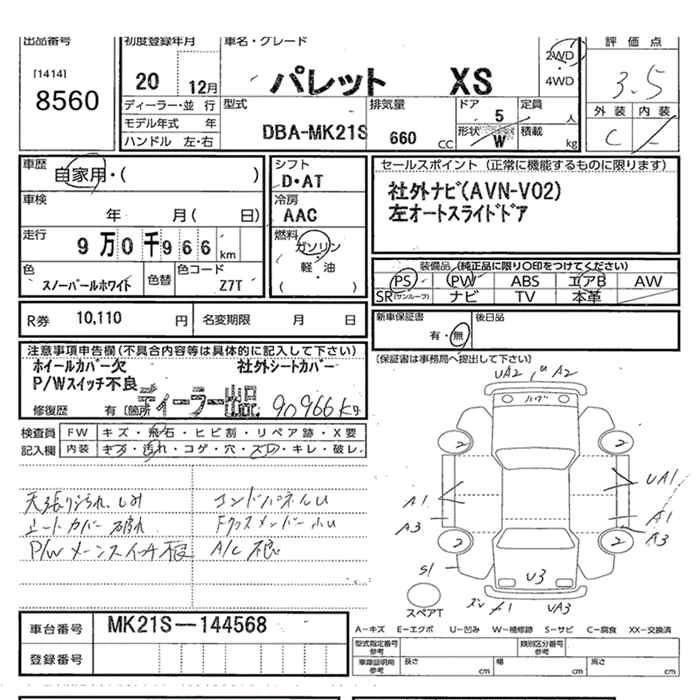 出品番号
[1414]
8560
初度登録年月
20 12月
車名・グレード
パレット XS
2WD
・
4WD
評価点
3.5
外装 内装
C
ディーラー・並行
モデル年式 年
ハンドル 左・右
型式
DBA-MK21S
排気量
660 CC
ドア
5
形状
W
定員
人
積載
kg
車歴
自家用・( )
車検
年 月( 日)
走行
9万0千966 km
色
スノーパールホワイト
色替
色コード
Z7T
シフト
D・AT
冷房
AAC
燃料
ガソリン
・
軽・油
( )
セールスポイント (正常に機能するものに限ります)
社外ナビ(AVN-V02)
左オートスライドドア
装備品 (純正品に限り〇印をつけてください)
PS PW ABS エアB AW
SR(サンルーフ) ナビ TV 本革
R券 10,110 円
名変期限 月 日
新車保証書
有・無
後日品
(保証書は事務局へ提出して下さい)
注意事項申告欄(不具合内容等は具体的に記入して下さい)
ホイールカバー欠 社外シートカバー
P/Wスイッチ不良
ディーラー出品 90966kg
修復歴 有 〔箇所
検査員 FW キズ・飛石・ヒビ割・リペア跡・X要
記入欄 内装 キズ・汚れ・コゲ・穴・スレ・キレ・破レ
天張りよごれ、しみ
シートカバー破れ
P/W メーンスイッチ不良
コンドパネルU
FクロスメンバーU
A/C不良
UA2 U A2
ハゲ
2 2
A1 UA1
A3 A1
A3
2 2
S1
U3
スペアT
A1 UA3
A-キズ E-エクボ U-凹み W-補修跡 S-サビ C-腐食 XX-交換済
車台番号 MK21S-144568
登録番号
型式指定番号
参考
類別区分番号
参考
車庫証明用
参考
長さ cm
幅 cm
高さ cm